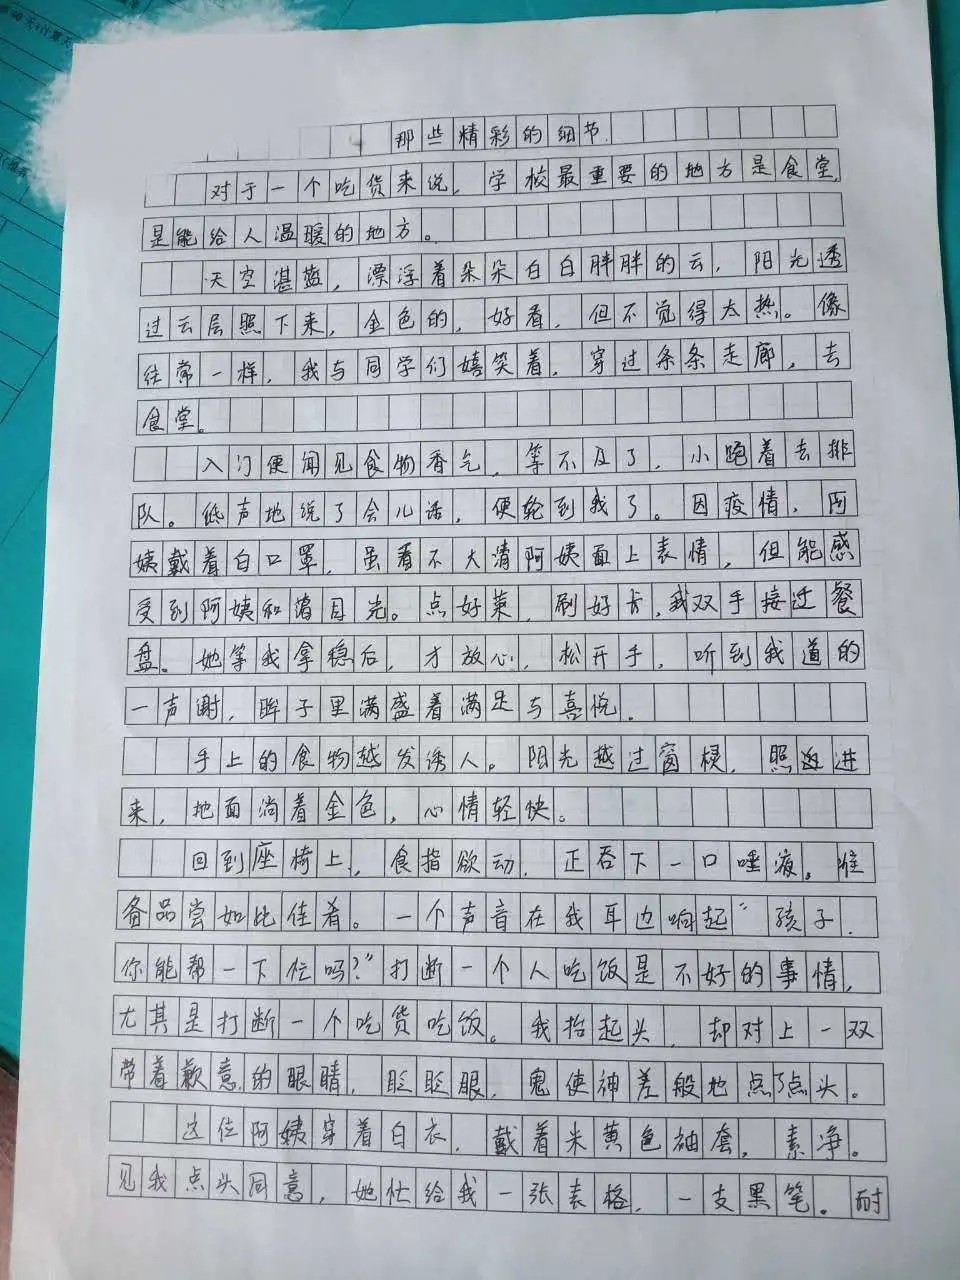 那些精彩的细节.
对于一个吃货来说，学校最重要的地方是食堂，
是能给人温暖的地方。
天空湛蓝，漂浮着朵朵白白胖胖的云，阳光透
过云层照下来，金色的，好看，但不觉得太热。像
往常一样，我与同学们嬉笑着，穿过条条走廊，去
食堂。
入门便闻见食物香气，等不及了，小跑着去排
队。低声地说了会儿话，便轮到我了。因疫情，阿
姨戴着白口罩，虽看不大清阿姨面上表情，但能感
受到阿姨和蔼目光。点好菜，刷好卡，我双手接过餐
盘。她等我拿稳后，才放心，松开手，听到我道的
一声谢，眸子里满盛着满足与喜悦.
手上的食物越发诱人。阳光越过窗棂，照进
来，地面淌着金色，心情轻快。
回到座椅上，食指欲动，正吞下一口唾液，准
备品尝如此佳肴。一个声音在我耳边响起“孩子，
你能帮一下忙吗？”打断一个人吃饭是不好的事情，
尤其是打断一个吃货吃饭。我抬起头，却对上一双
带着歉意的眼睛，眨眨眼，鬼使神差般地点了点头。
这位阿姨穿着白衣，戴着米黄色袖套，素净。
见我点头同意，她忙给我一张表格，一支黑笔。耐